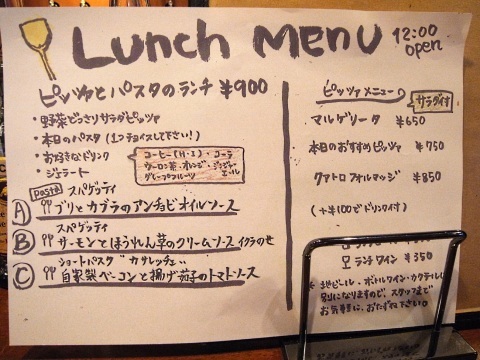 Lunch Menu
12:00 open
ピッツァとパスタのランチ ¥900
・野菜どっさりサラダピッツァ
・本日のパスタ (1つチョイスして下さい!)
・お好きなドリンク
・ジェラート
コーヒー(H・I)・コーラ
ウーロン茶・オレンジ・ジンジャーエール
グレープフルーツ
pasta スパゲッティ
A ブリとカブラのアンチョビオイルソース
スパゲッティ
B サーモンとほうれん草のクリームソース イクラのせ
ショートパスタ"カサレッチェ"
C 自家製ベーコンと揚げ茄子のトマトソース
ピッツァメニュー
サラダ付
マルゲリータ ¥650
本日のおすすめピッツァ ¥750
クアトロフォルマッジ ¥850
(+¥100でドリンク付)
ランチワイン ¥350
地ビール・ボトルワイン・カクテルも
別になりますので、スタッフまで
お気軽に、おたずね下さい。